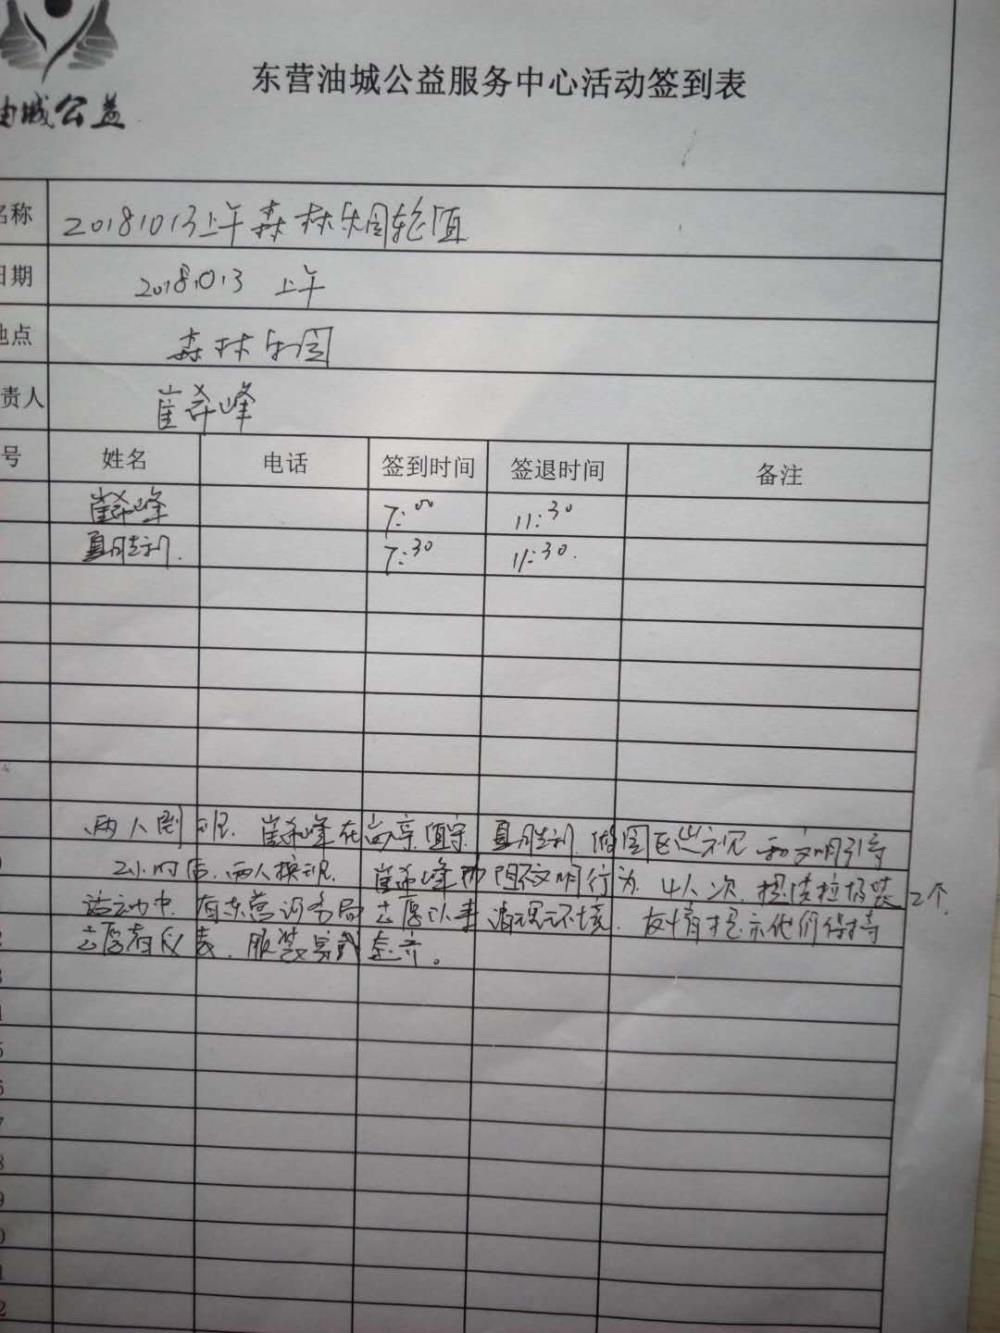 油城公益
东营油城公益服务中心活动签到表
名称 20181013上午森林乐园轮值
日期 2018.10.13 上午
地点 森林乐园
责人 崔希峰
号 姓名 电话 签到时间 签退时间 备注
崔希峰 7:00 11:30
夏胜利. 7:30 11:30.
两人倒班. 崔希峰在岗亭值守 夏胜利 园区巡视 和文明引导
2小时后. 两人换班. 崔希峰 阻文明行为 4人次. 捡 垃圾袋2个
活动中 有东营 务局志愿 来清理环境. 友情提示他们保持
志愿者仪表. 服装